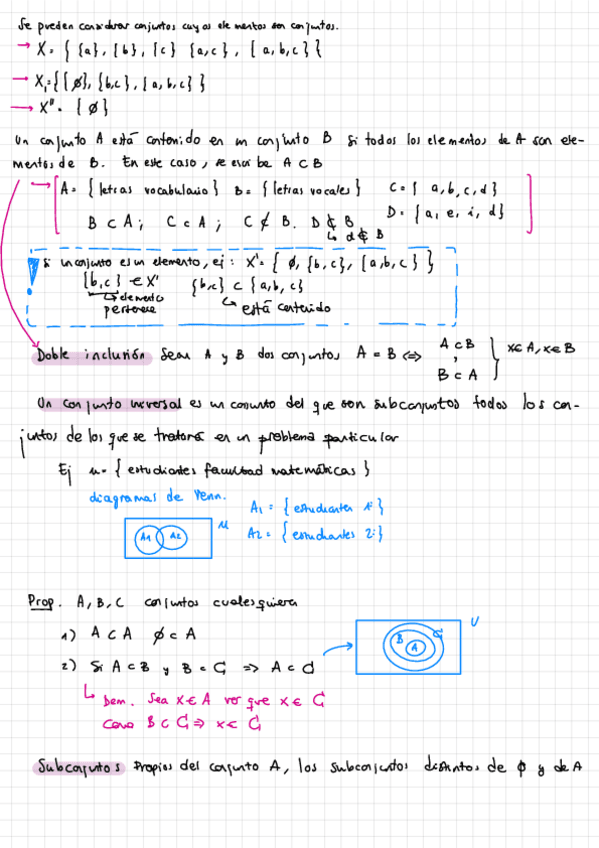 Se pueden considerar conjuntos cuyos elementos son conjuntos.
→ X = { {a}, {b}, {c} {a,c}, {a,b,c} {
→ X₁ = { {∅}, {b,c}, {a,b,c} }
→ X'' = {∅}
Un conjunto A está contenido en un conjunto B si todos los elementos de A son ele-
mentos de B. En este caso, se escribe A ⊂ B
→ A = {letras vocabulario} B = {letras vocales} C = { a,b,c,d}
B ⊂ A; C ⊂ A; C ⊄ B. D ⊄ B D = {a, e, i, d}
↳ d ∉ B
! Si un conjunto es un elemento, ej: X' = { ∅, {b,c}, {a,b,c} }
{b,c} ∈ X' {b,c} ⊂ {a,b,c}
↳ elemento pertenece ↳ está contenido
Doble inclusión Sean A y B dos conjuntos A = B ⇔ A ⊂ B , B ⊂ A } x∈A, x∈B
Un conjunto universal es un conjunto del que son subconjuntos todos los con-
juntos de los que se tratará en un problema particular
Ej u = { estudiantes facultad matemáticas }
diagramas de Venn. A₁ = { estudiantes 1º }
A1 A2 u A₂ = { estudiantes 2º }
Prop. A, B, C conjuntos cualesquiera
1) A ⊂ A ∅ ⊂ A
2) Si A ⊂ B y B ⊂ C ⇒ A ⊂ C
A B C U
↳ Dem. Sea x ∈ A ver que x ∈ C
Como B ⊂ C ⇒ x ∈ C
Subconjutos Propios del conjunto A, los subconjuntos distintos de ∅ y de A